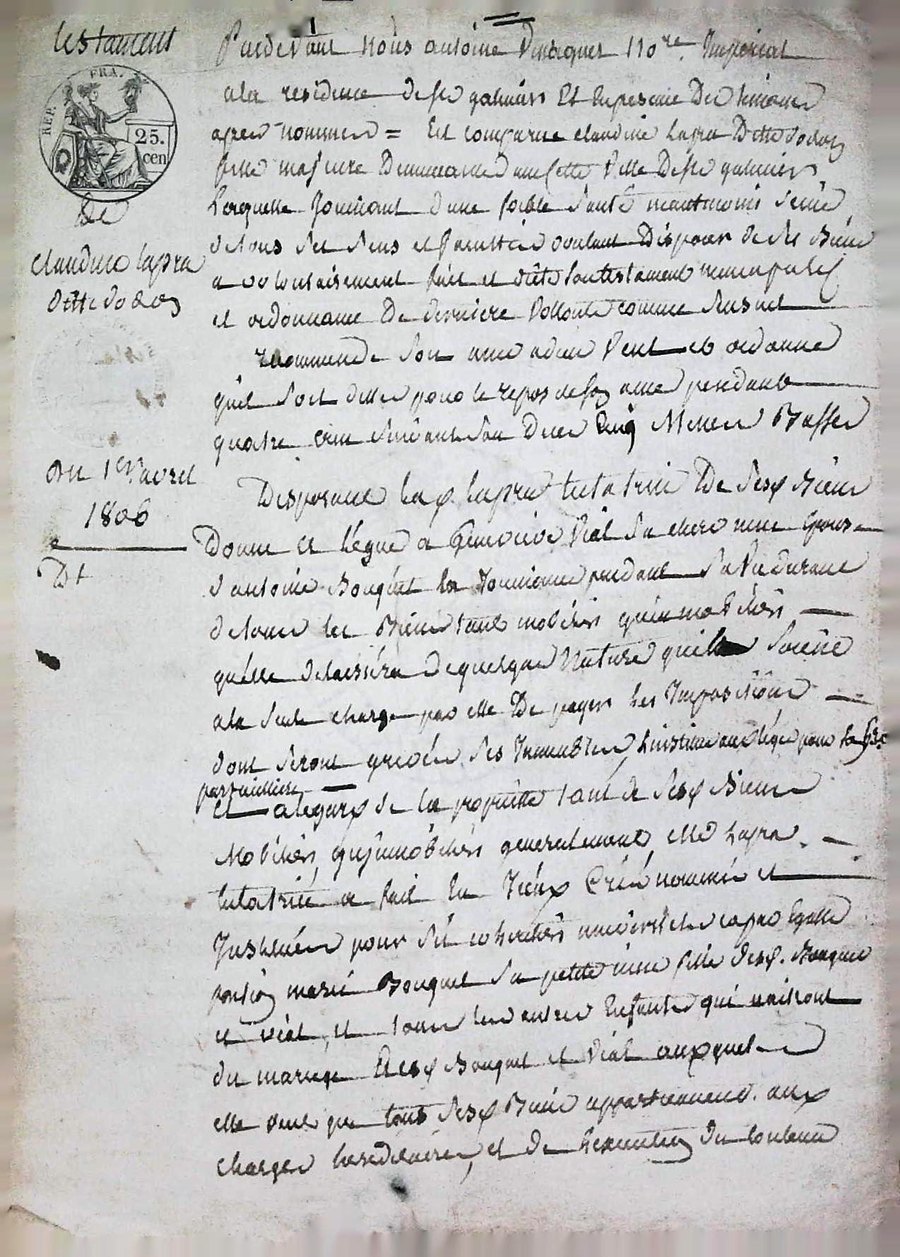 testament
REP. FRA.
25.
cen
de
claudine lapra
ditte dodon
Du 1er avril
1806
Dt
Pardevant Nous antoine nore. Imperial
ala residence de st galmier Et En presence Des temoins
apres nommes = Est comparue claudine Lapra Ditte dodon
fille majeure Demeurante Dans cette Ville De st galmier
Laquelle Jouissant d'une foible Santé neantmoins Seine
de tous Ses Sens et voulant Disposer de Ses Biens
a volontairement fait et dicté Son testament nuncupatif
et ordonnance De derniere Vollonté comme Sensuit
recommande Son ame a dieu Veut et ordonne
quil Soit dittes pour le repos de son ame pendant
quatre ans Suivant Son Deces Cinq Messes Basses
Disposant La d. Lapra testatrice De Sesd. Biens
Donne et Légue a Genevieve Vial Sa chere niece Epouse
d'antoine Bouquet La Jouissance pendant Sa Vie durant
de tous les Biens tant mobiliers qu'immobiliers
quelle delaissera de quelque Nature quils Soient
ala Seule charge par elle De payer Les Impositions
dont Seront grevés Ses Immeubles, Linstitue au lége pour Son htre
particulliere
Et alegard de la propriette tant de Sesd. Biens
Mobiliers, qu'immobiliers generalement elle d. Lapra
testatrice a fait En Iceux Créé nommé et
Institué pour Ses coheritiers universels et a par Egalle
portion marie Bouquet Sa petite niece fille desd. Bouquet
et vial, et tous les autres Enfants qui naitront
du mariage Desd. Bouquet et Vial auxquels
elle veut que tous Sesd. Biens appartiennent. aux
charges hereditaires, et de Lexecution du contenu